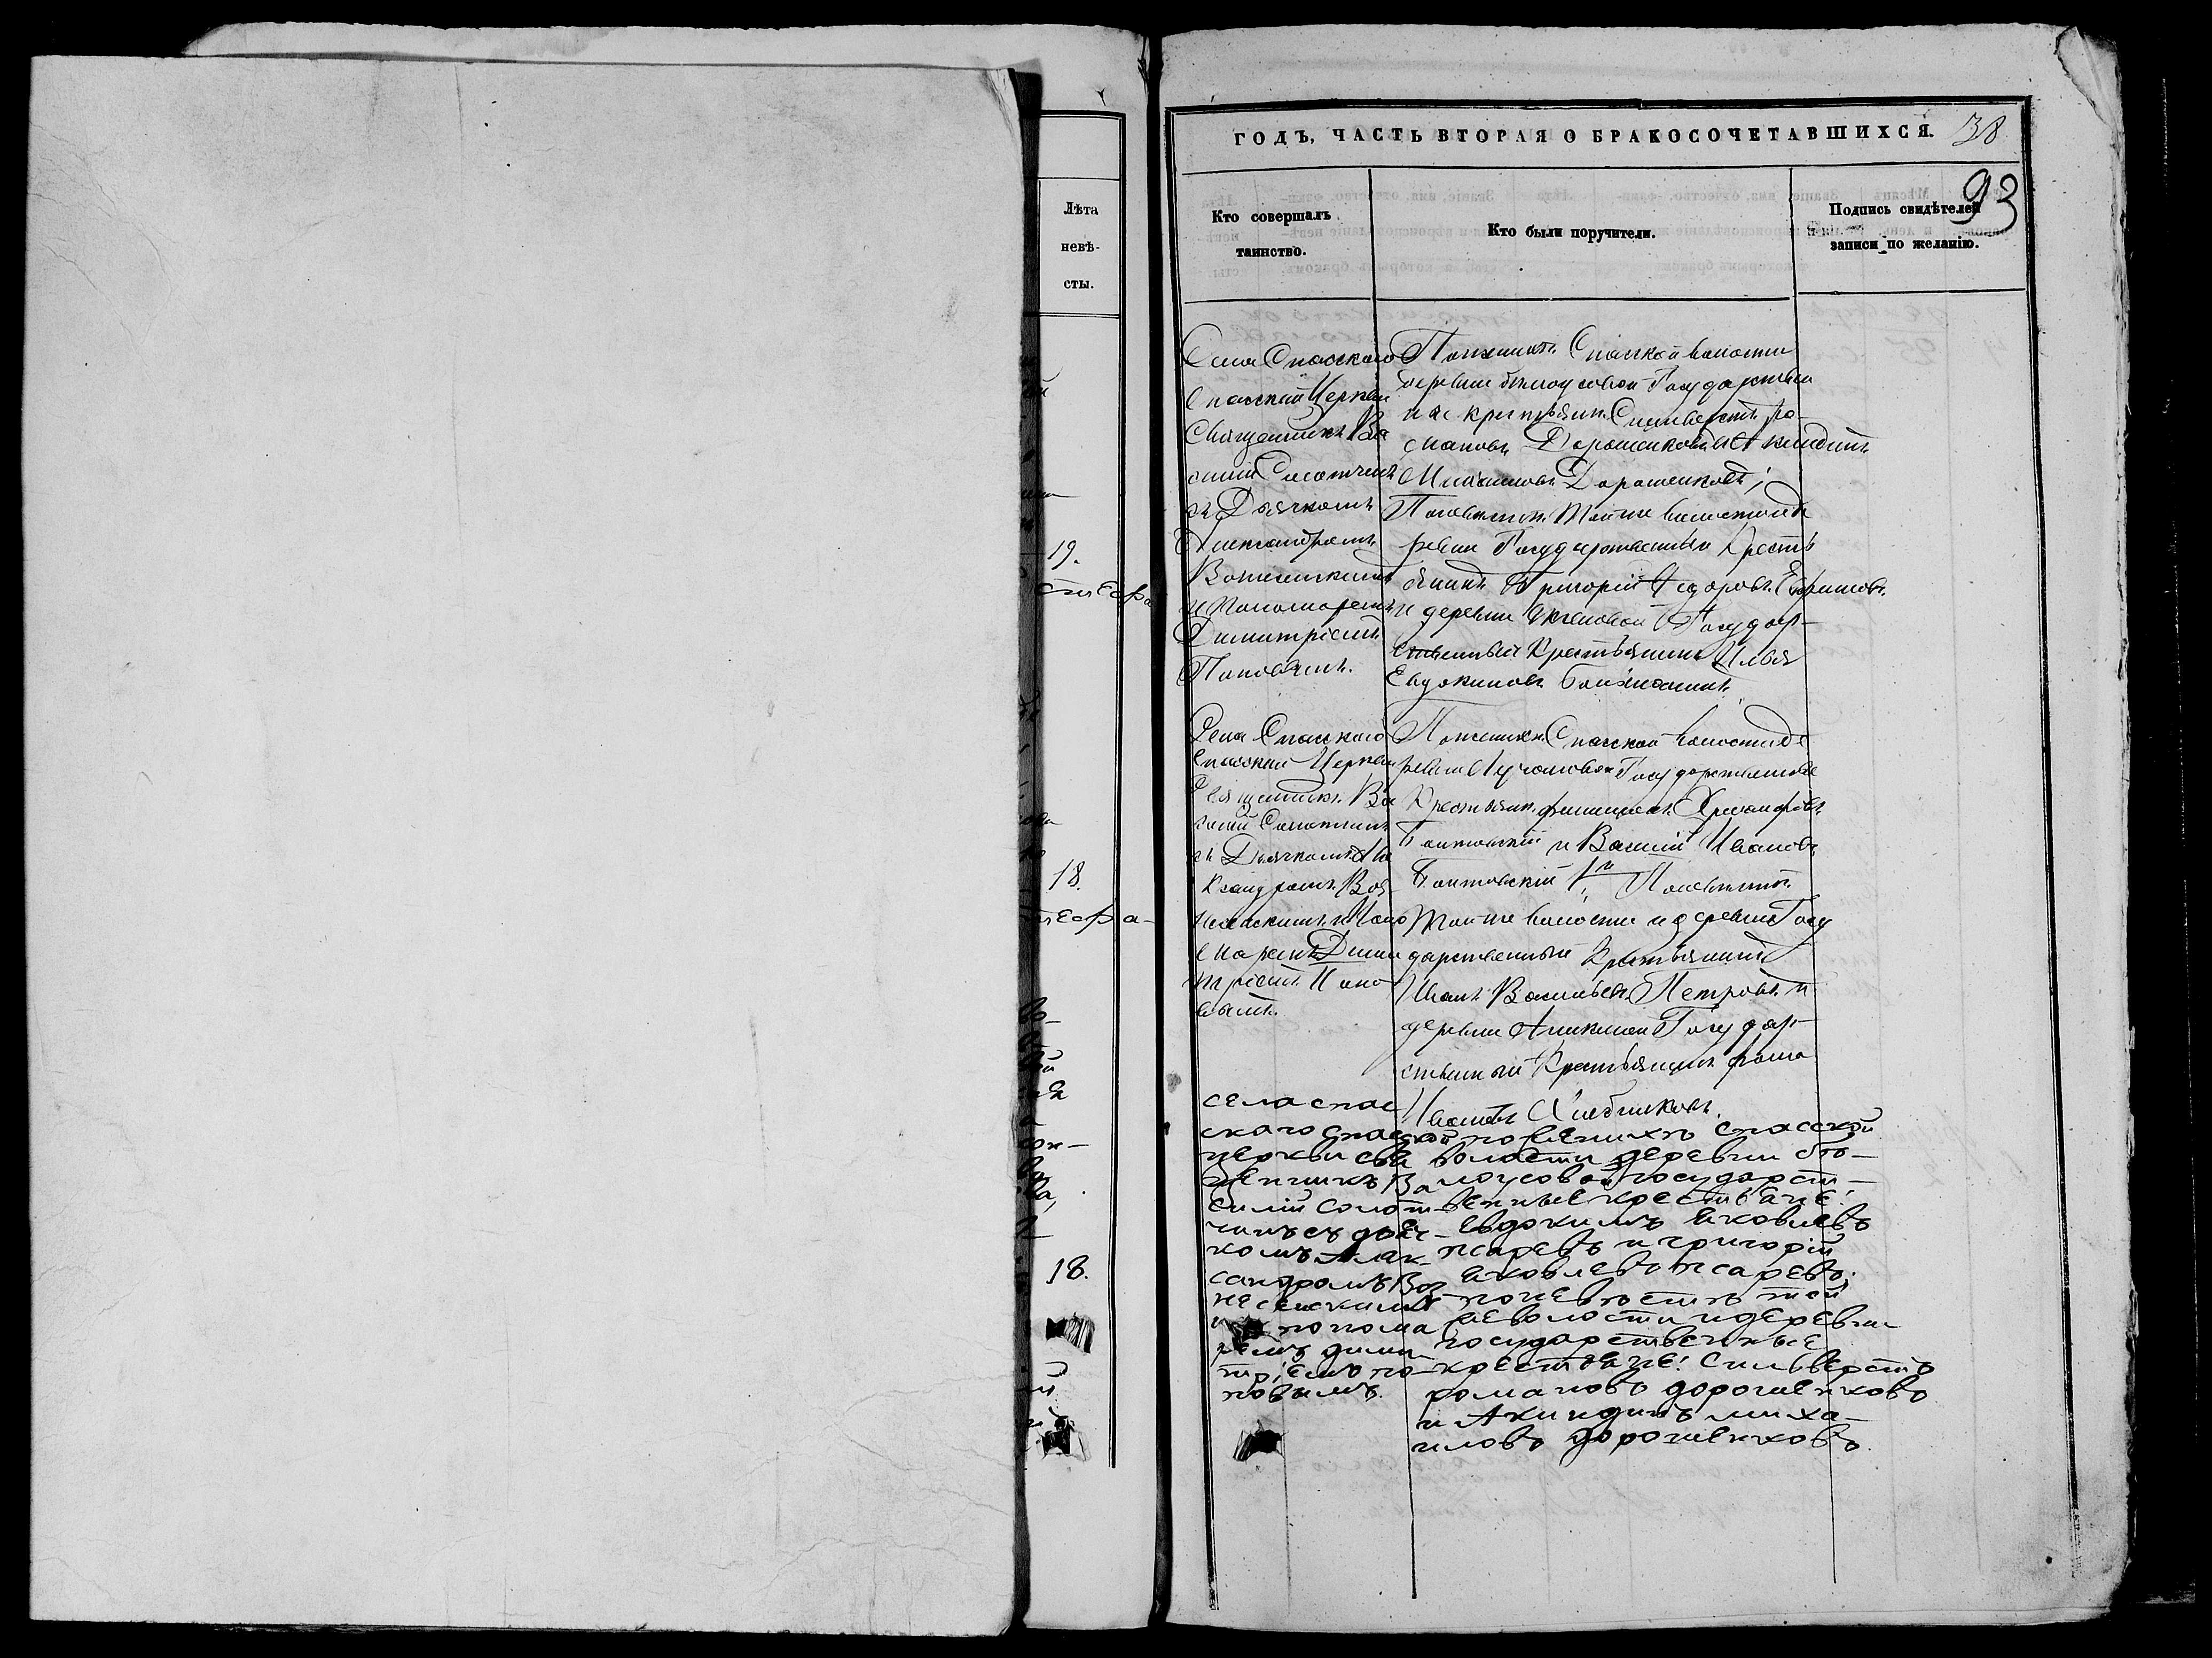 ГОДЪ, ЧАСТЬ ВТОРАЯ О БРАКОСОЧЕТАВШИХСЯ. 38
93
Лѣта
невѣ-
сты.
19.
18.
18.
Кто совершалъ
таинство.
Кто были поручители.
Подпись свидѣтелей
записи по желанію.
Села Спаскаго
Спаской Церкви
Священникъ Ва
силій Сахотинъ
съ Дьячкомъ
Александромъ
Вознесенскимъ
и Пономаремъ
Димитріемъ
Поповымъ.
По женихѣ Спаской волости
деревни Бѣлоусовой Государствен
ные крестьяне Сильверстъ Ро-
мановъ Дорошенковъ и Акиндинъ
Михаиловъ Дорошенковъ;
По невѣстѣ Той же волости и де
ревни Государственный Кресть
янинъ Григорій Ѳедоровъ Ефимовъ
и деревни Государ-
ственный Крестьянинъ Илья
Евдокимовъ
Села Спаскаго
Спаской Церкви
Священникъ Ва
силій
съ Дьячкомъ Але
ксандромъ Воз-
несенскимъ и Поно
маремъ Дими
тріемъ Попо
вымъ.
По женихѣ Спаской волости де
ревни Государственные
Крестьяне Филиппъ Хрисанфовъ
Болтовскій и Василій Ивановъ
Болтовскій По невѣстѣ
Той же волости и деревни Госу
дарственный Крестьянинъ
Иванъ Васильевъ Петровъ и
деревни Аникиной Государ-
ственный Крестьянинъ Фома
Ивановъ Хлебниковъ.
села спас
скаго спаской
церкви свя
щенникъ Ва
силій
съ дьяч-
комъ Алек-
сандромъ Воз-
несенскимъ
и понома
ремъ дими
тріемъ по-
повымъ.
по женихѣ спасской
волости деревни бѣ-
лоусовой государст-
венные крестьяне:
Евдокимъ яковлевъ
псаревъ и григорій
яковлевъ псаревъ;
по невѣстѣ той
же волости и деревни
государственные
крестьяне: сильверстъ
романовъ дорошенковъ
и Акиндинъ миха-
иловъ дорошенковъ.